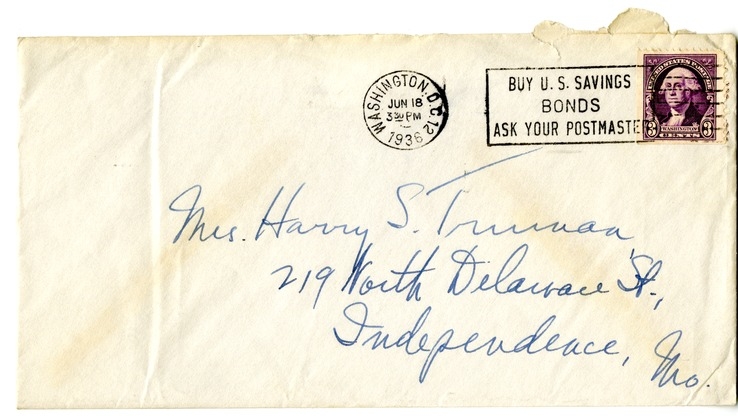 WASHINGTON, D.C. 12
JUN 18
3 30 PM
1936
BUY U.S. SAVINGS
BONDS
ASK YOUR POSTMASTE
UNITED STATES POSTAGE
3 WASHINGTON 3
CENTS
Mrs. Harry S. Truman
219 North Delaware St.,
Independence, Mo.